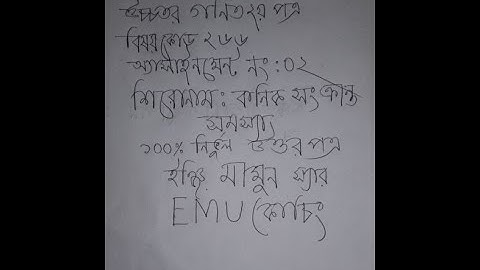 উচ্চতর গনিত ২য় পত্র
বিষয় কোড ২৬৬
অ্যাসাইনমেন্ট নং : ০২
শিরোনাম : কনিক সংক্রান্ত
সমস্যা
১০০% নির্ভুল উত্তরপত্র
ইঞ্জিঃ মামুন স্যার
EMU কোচিং